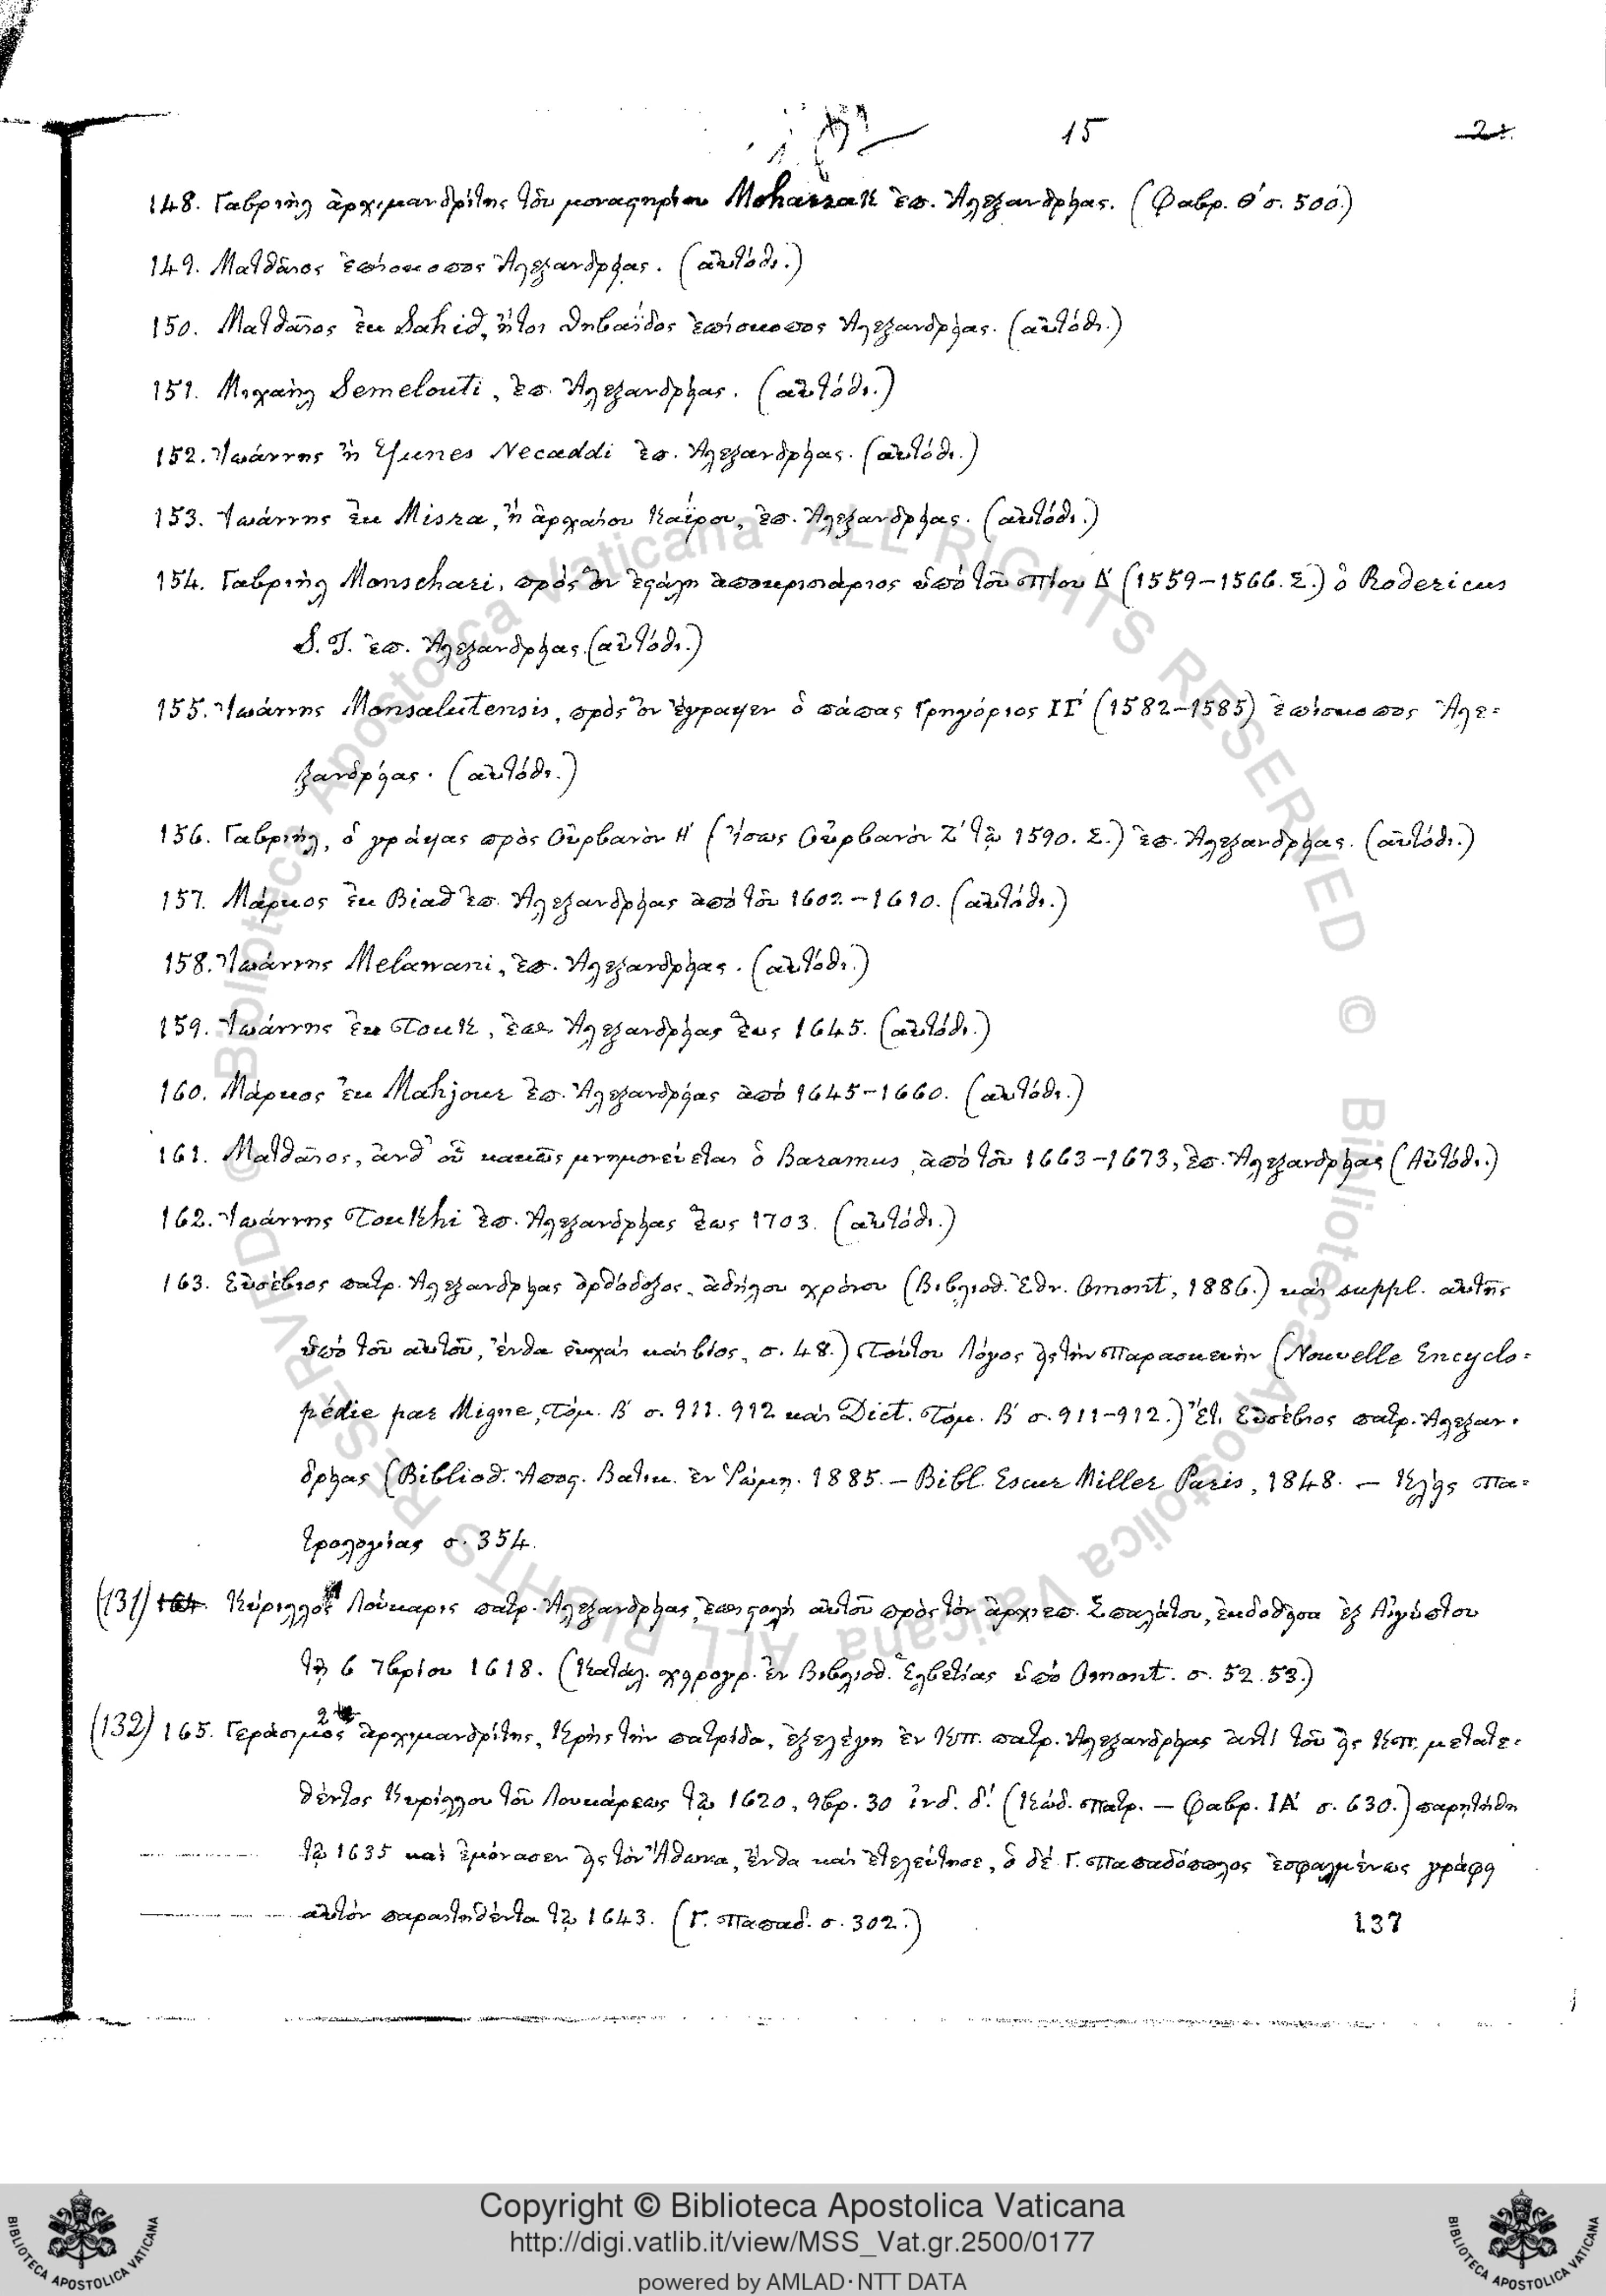 15
148. Γαβριὴλ ἀρχιμανδρίτης τοῦ μοναστηρίου Moharrak ἐπ. Ἀλεξανδρείας. (Φαβρ. Θ΄ σ. 500.)
149. Ματθαῖος ἐπίσκοπος Ἀλεξανδρείας. (αὐτόθι.)
150. Ματθαῖος ἐκ Sahid, ἤτοι Θηβαΐδος ἐπίσκοπος Ἀλεξανδρείας. (αὐτόθι.)
151. Μιχαὴλ Semelouti, ἐπ. Ἀλεξανδρείας. (αὐτόθι.)
152. Ἰωάννης ἢ Yunes Necaddi ἐπ. Ἀλεξανδρείας. (αὐτόθι.)
153. Ἰωάννης ἐκ Misra, ἢ ἀρχαίου Καΐρου, ἐπ. Ἀλεξανδρείας. (αὐτόθι.)
154. Γαβριὴλ Monschari, πρὸς ὃν ἐστάλη ἀποκρισιάριος ὑπὸ τοῦ Πίου Δ΄ (1559–1566. Σ.) ὁ Rodericus
S. J. ἐπ. Ἀλεξανδρείας. (αὐτόθι.)
155. Ἰωάννης Monsalutensis, πρὸς ὃν ἔγραψεν ὁ πάπας Γρηγόριος ΙΓ΄ (1582–1585) ἐπίσκοπος Ἀλε-
ξανδρείας. (αὐτόθι.)
156. Γαβριὴλ, ὁ γράψας πρὸς Οὐρβανὸν Η΄ (Ἴσως Οὐρβανὸν Ζ΄ τῷ 1590. Σ.) ἐπ. Ἀλεξανδρείας. (αὐτόθι.)
157. Μάρκος ἐκ Biad ἐπ. Ἀλεξανδρείας ἀπὸ τοῦ 1602–1610. (αὐτόθι.)
158. Ἰωάννης Melawani, ἐπ. Ἀλεξανδρείας. (αὐτόθι.)
159. Ἰωάννης ἐκ Touk, ἐπ. Ἀλεξανδρείας ἕως 1645. (αὐτόθι.)
160. Μάρκος ἐκ Mahjour ἐπ. Ἀλεξανδρείας ἀπὸ 1645–1660. (αὐτόθι.)
161. Ματθαῖος, ἀνθ' οὗ κακῶς μνημονεύεται ὁ Baramus, ἀπὸ τοῦ 1663–1673, ἐπ. Ἀλεξανδρείας (Αὐτόθι.)
162. Ἰωάννης Toukhi ἐπ. Ἀλεξανδρείας ἕως 1703. (αὐτόθι.)
163. Εὐσέβιος πατρ. Ἀλεξανδρείας ὀρθόδοξος, ἀδήλου χρόνου (Βιβλιοθ. Ἐθν. Omont, 1886.) καὶ suppl. αὐτῆς
ὑπὸ τοῦ αὐτοῦ, ἔνθα εὐχαὶ καὶ βίος, σ. 48.) Τούτου λόγος εἰς τὴν Παρασκευὴν (Nouvelle Encyclo-
pédie par Migne, Τόμ. Β΄ σ. 911. 912 καὶ Dict. Τόμ. Β΄ σ. 911–912.) Ἔτι Εὐσέβιος πατρ. Ἀλεξαν-
δρείας (Βιβλιοθ. Ἀποσ. Βατικ. ἐν Ῥώμῃ. 1885. – Bibl. Escur Miller Paris, 1848. – Κλεὶς Πα-
τρολογίας σ. 354.
(131) 164. Κύριλλος Λούκαρις πατρ. Ἀλεξανδρείας, ἐπιστολὴ αὐτοῦ πρὸς τὸν ἀρχιεπ. Σπαλάτου, ἐκδοθεῖσα ἐξ Αἰγύπτου
τῇ 6 7βρίου 1618. (Κατάλ. χειρογρ. ἐν Βιβλιοθ. Ἑλβετίας ὑπὸ Omont. σ. 52. 53.)
(132) 165. Γεράσιμος ἀρχιμανδρίτης, Κρὴς τὴν πατρίδα, ἐξελέγη ἐν Κπ. πατρ. Ἀλεξανδρείας ἀντὶ τοῦ εἰς Κπ. μετατε-
θέντος Κυρίλλου τοῦ Λουκάρεως τῷ 1620, 9βρ. 30 ἰνδ. δ΄. (Κώδ. Πατρ. – Φαβρ. ΙΑ΄ σ. 630.) παρητήθη
τῷ 1635 καὶ ἐμόνασεν εἰς τὸν Ἄθωνα, ἔνθα καὶ ἐτελεύτησε, ὁ δέ Γ. Παπαδόπολος ἐσφαλμένως γράφει
αὐτὸν παραιτηθέντα τῷ 1643. (Γ. Παπαδ. σ. 302.)
137
Copyright © Biblioteca Apostolica Vaticana
http://digi.vatlib.it/view/MSS_Vat.gr.2500/0177
powered by AMLAD·NTT DATA